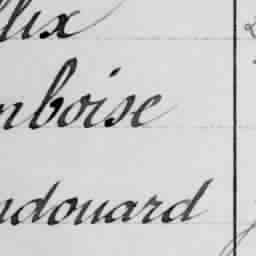 llix
mboise
ndouard